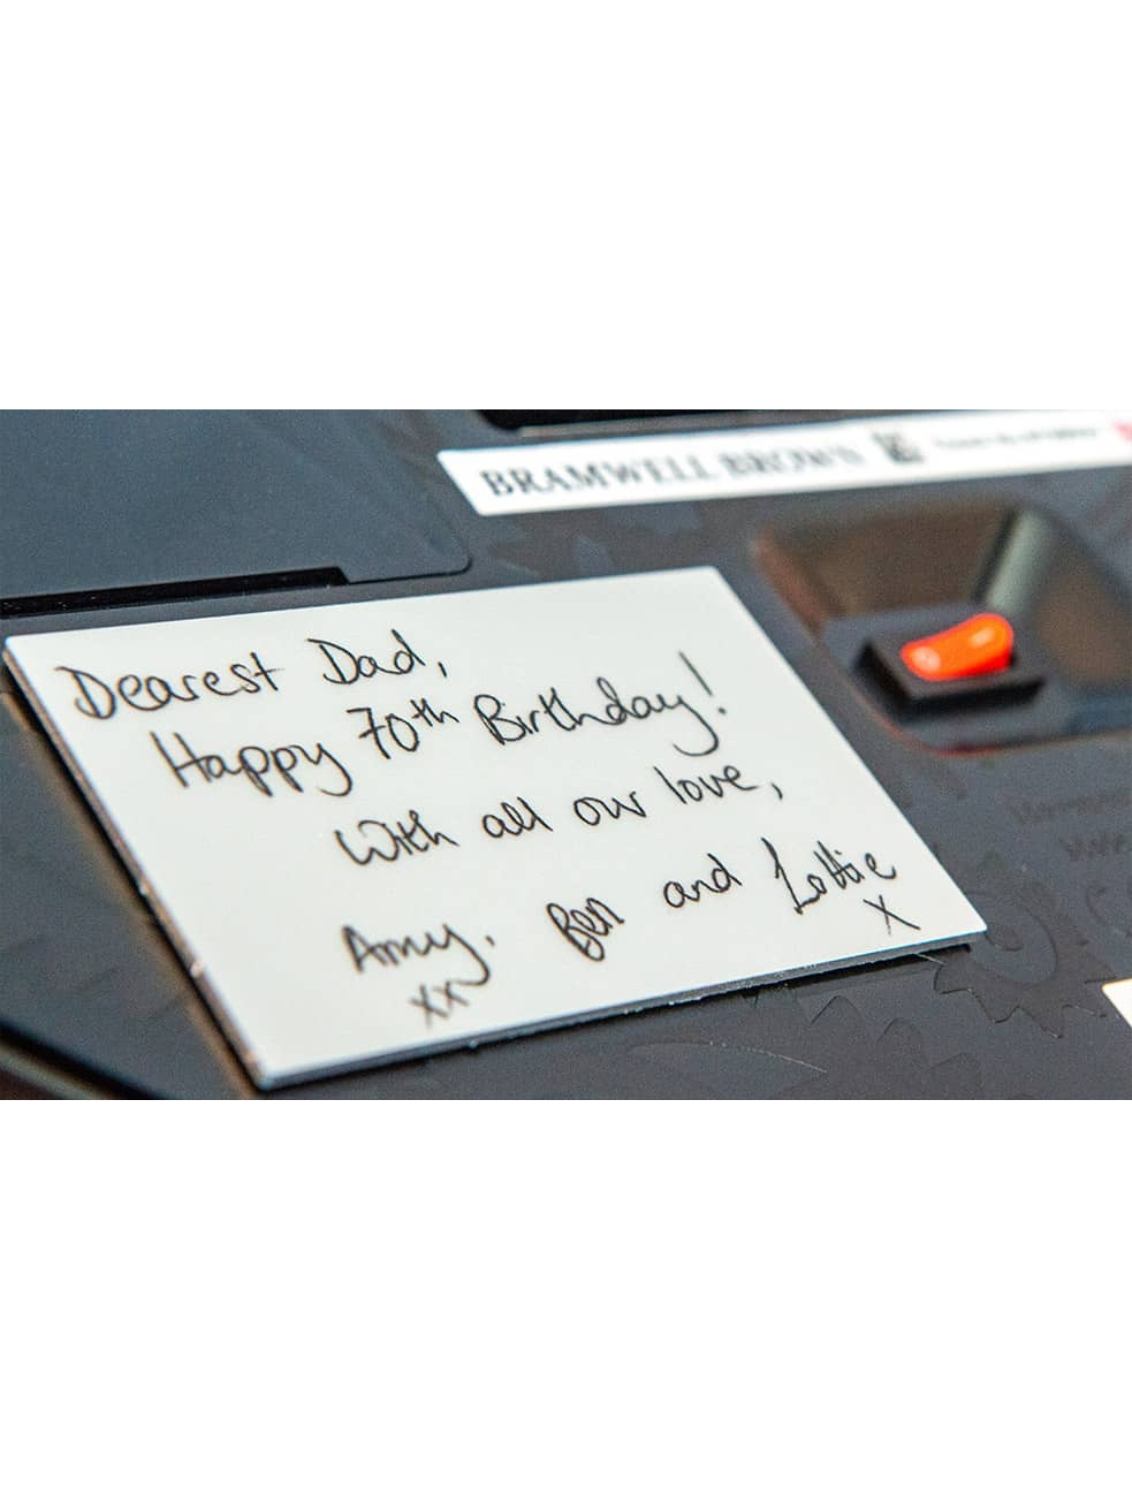 BRAMWELL BROWN
Dearest Dad,
Happy 70th Birthday!
With all our love,
Amy, Ben and Lottie
xx x